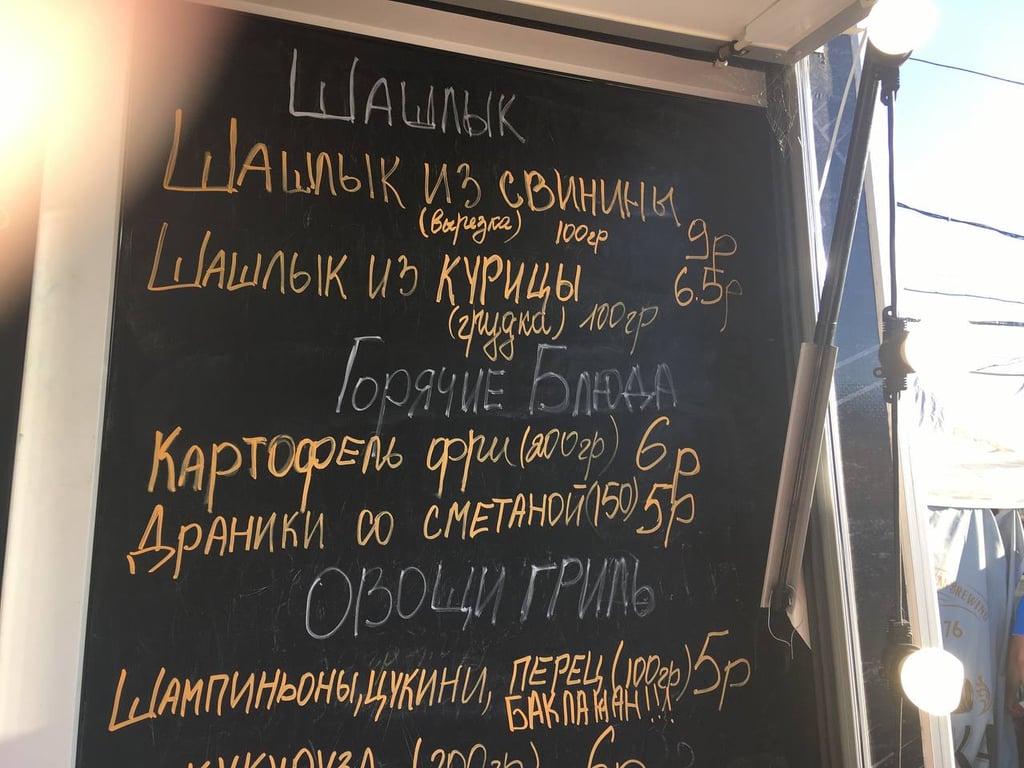 Шашлык
Шашлык из свинины
(вырезка) 100гр 9р
Шашлык из курицы 6.5р
(грудка) 100гр
Горячие Блюда
Картофель фри (200гр) 6р
Драники со сметаной (150) 5р
Овощи гриль
Шампиньоны, цукини, перец (100гр) 5р
баклажан!!!
кукуруза (200гр) 6р
76